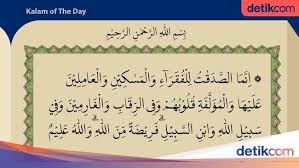 Kalam of The Day
detikcom
بِسْمِ اللّٰهِ الرَّحْمٰنِ الرَّحِيْمِ
۞ اِنَّمَا الصَّدَقٰتُ لِلْفُقَرَاۤءِ وَالْمَسٰكِيْنِ وَالْعَامِلِيْنَ
عَلَيْهَا وَالْمُؤَلَّفَةِ قُلُوْبُهُمْ وَفِى الرِّقَابِ وَالْغَارِمِيْنَ وَفِيْ
سَبِيْلِ اللّٰهِ وَابْنِ السَّبِيْلِۗ فَرِيْضَةً مِّنَ اللّٰهِ ۗوَاللّٰهُ عَلِيْمٌ
detikcom